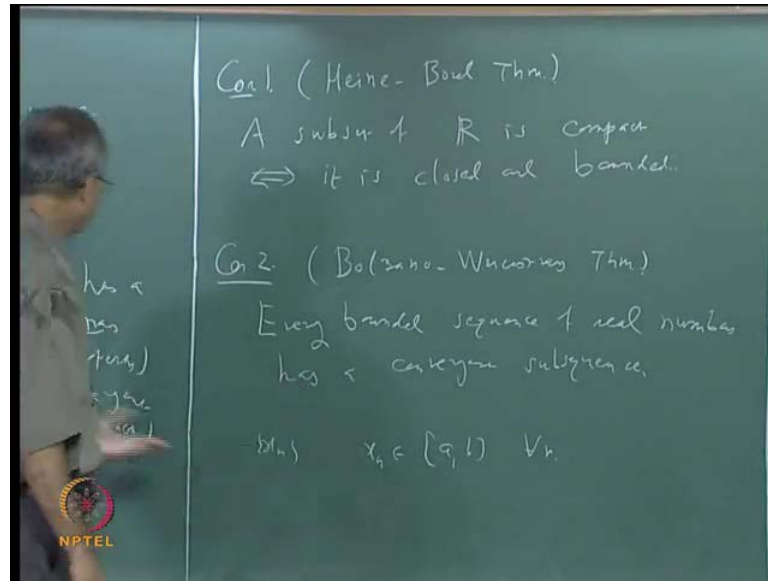 Cor 1. (Heine-Borel Thm.)
A subset of R is compact
⇔ it is closed and bounded.
has a
Cor 2. (Bolzano-Weierstrass Thm.)
Every bounded sequence of real numbers
has a convergent subsequence.
{xₙ} xₙ ∈ [a, b] ∀n.
NPTEL